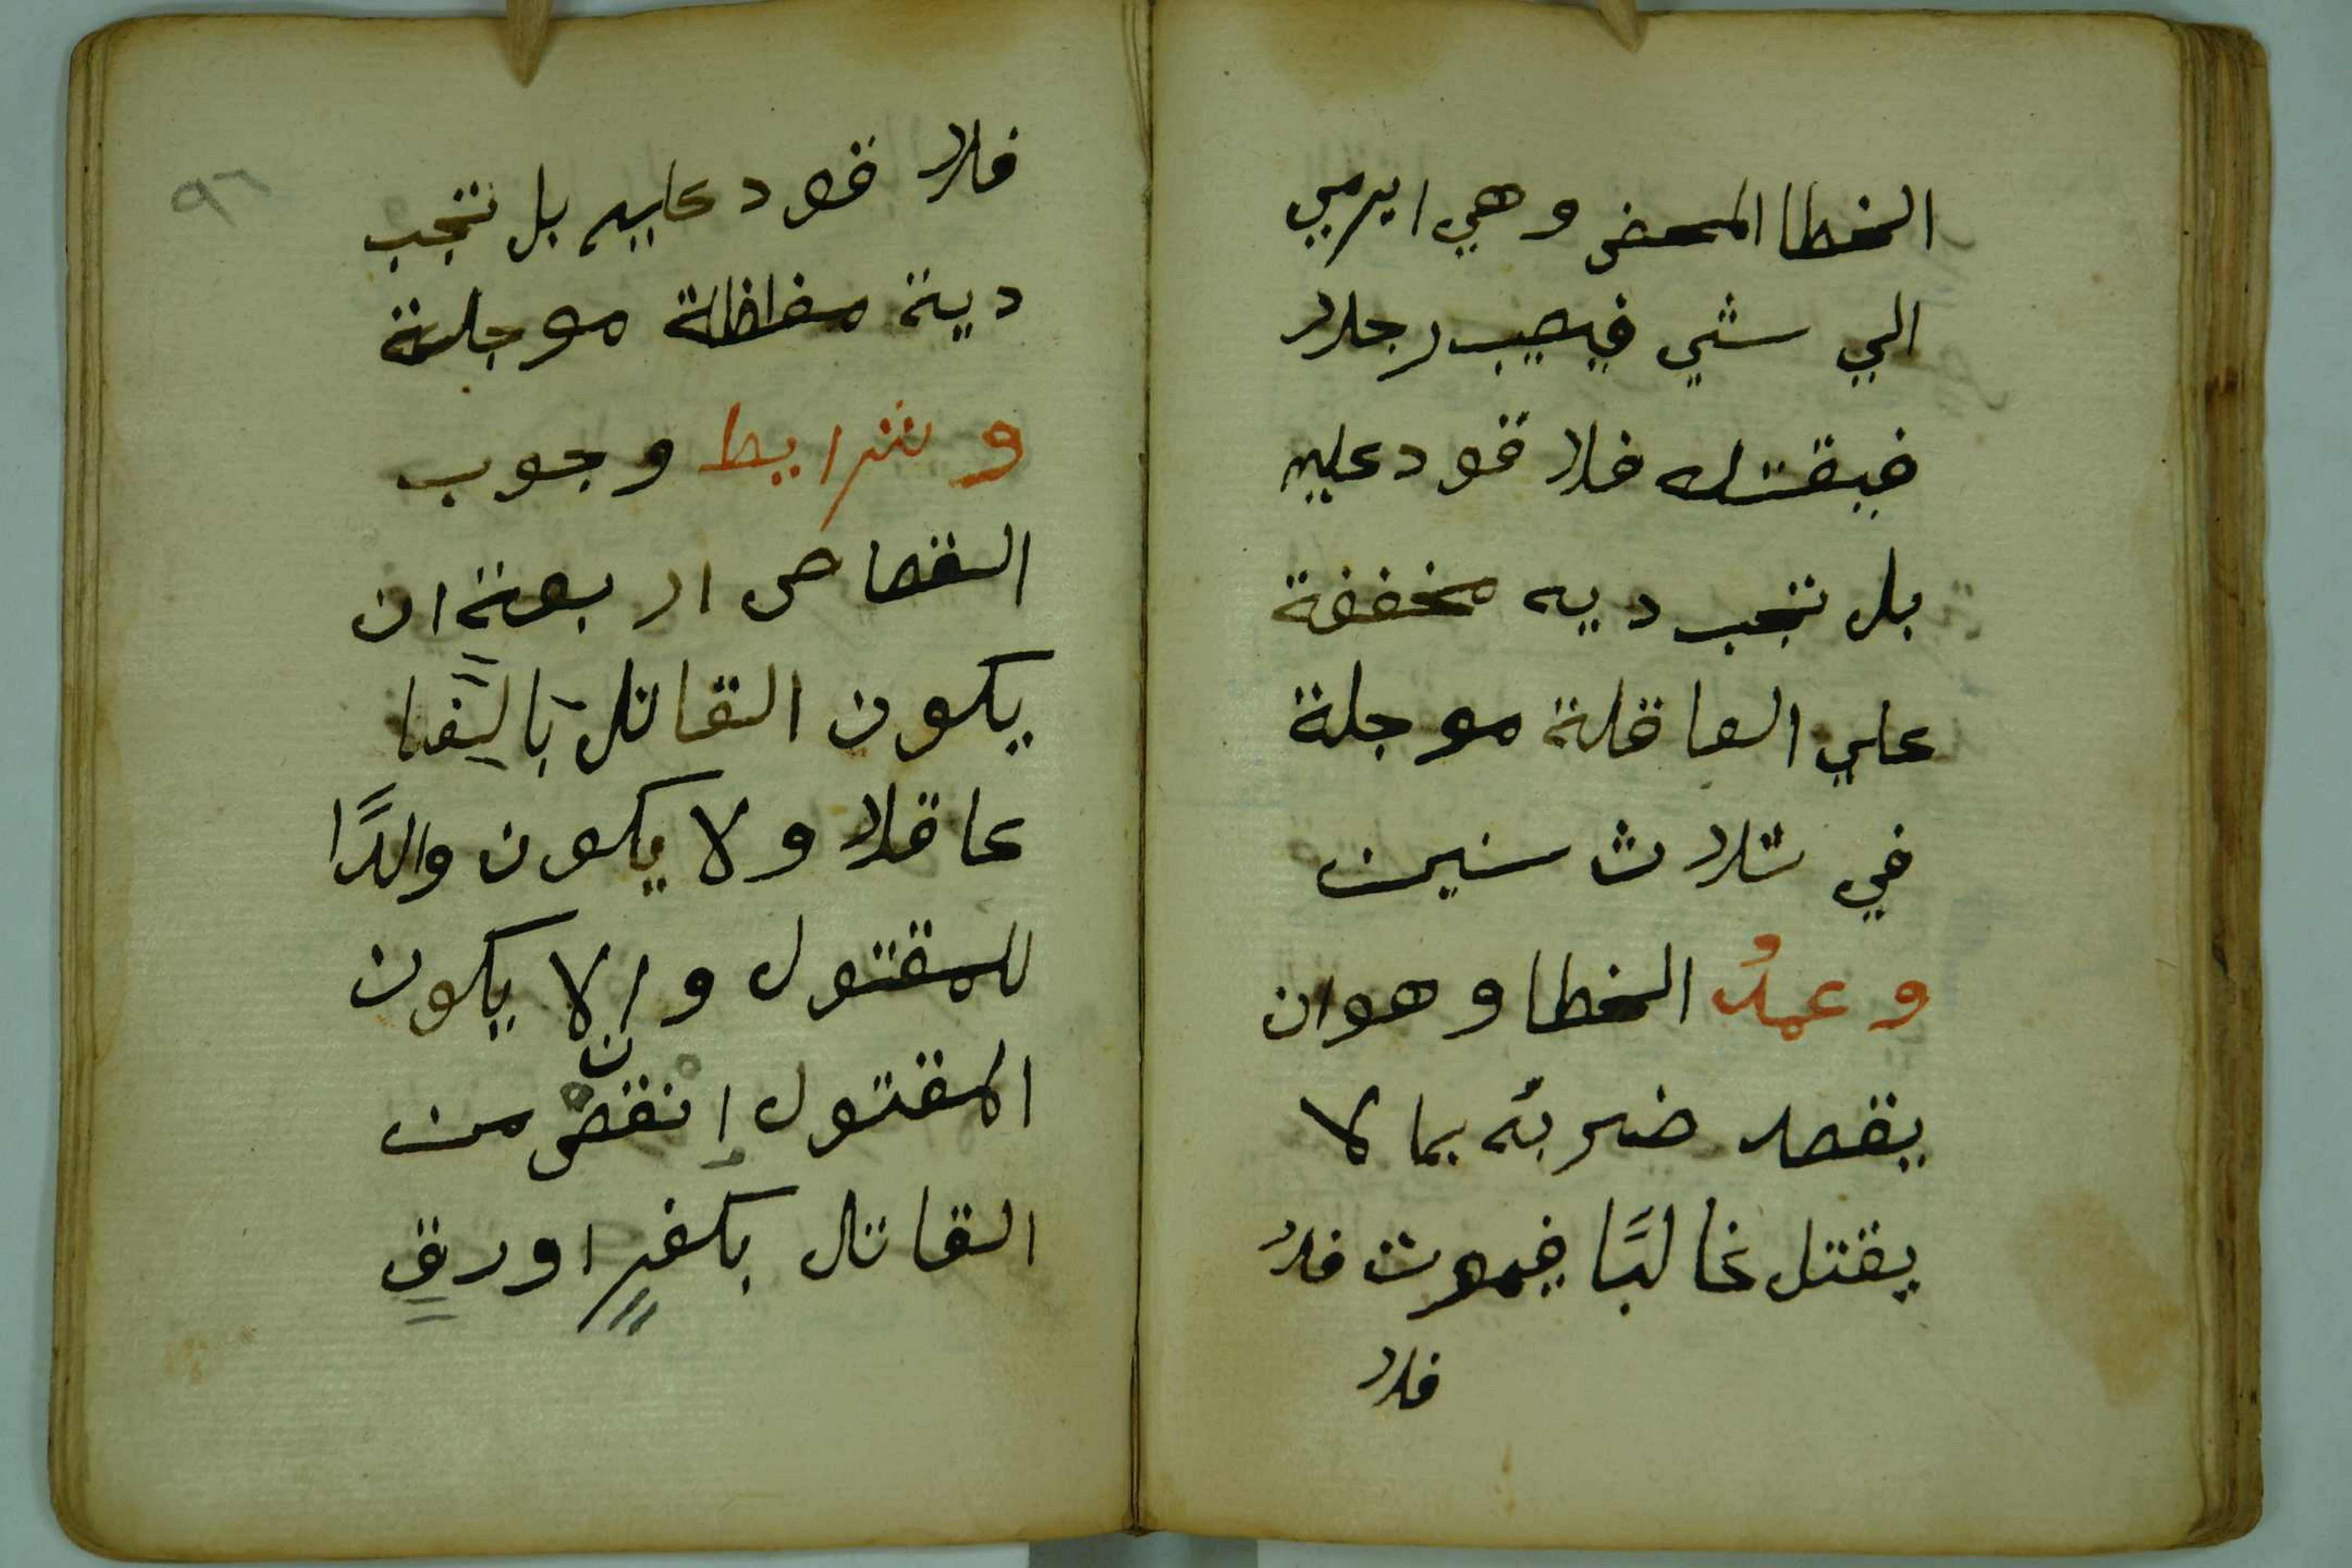 الخطا المحض وهي ايرمي
الي شي فيصيب رجلا
فيقتله فلا قود عليه
بل تجب ديه مخففة
علي العاقلة موجلة
في ثلاث سنين
وعمدُ الخطا وهوان
يقصد ضربه بما لا
يقتل غالبًا فيموت فلا
فلا
٩٦
فلا قود عليه بل تجب
دية مغلظة موجلة
وشرايط وجوب
القصاص اربعة ان
يكون القاتل بالغا
عاقلا ولا يكون والدًا
للمقتول وان لا يكون
المقتول انقص من
القاتل بكفرٍ اورقٍ